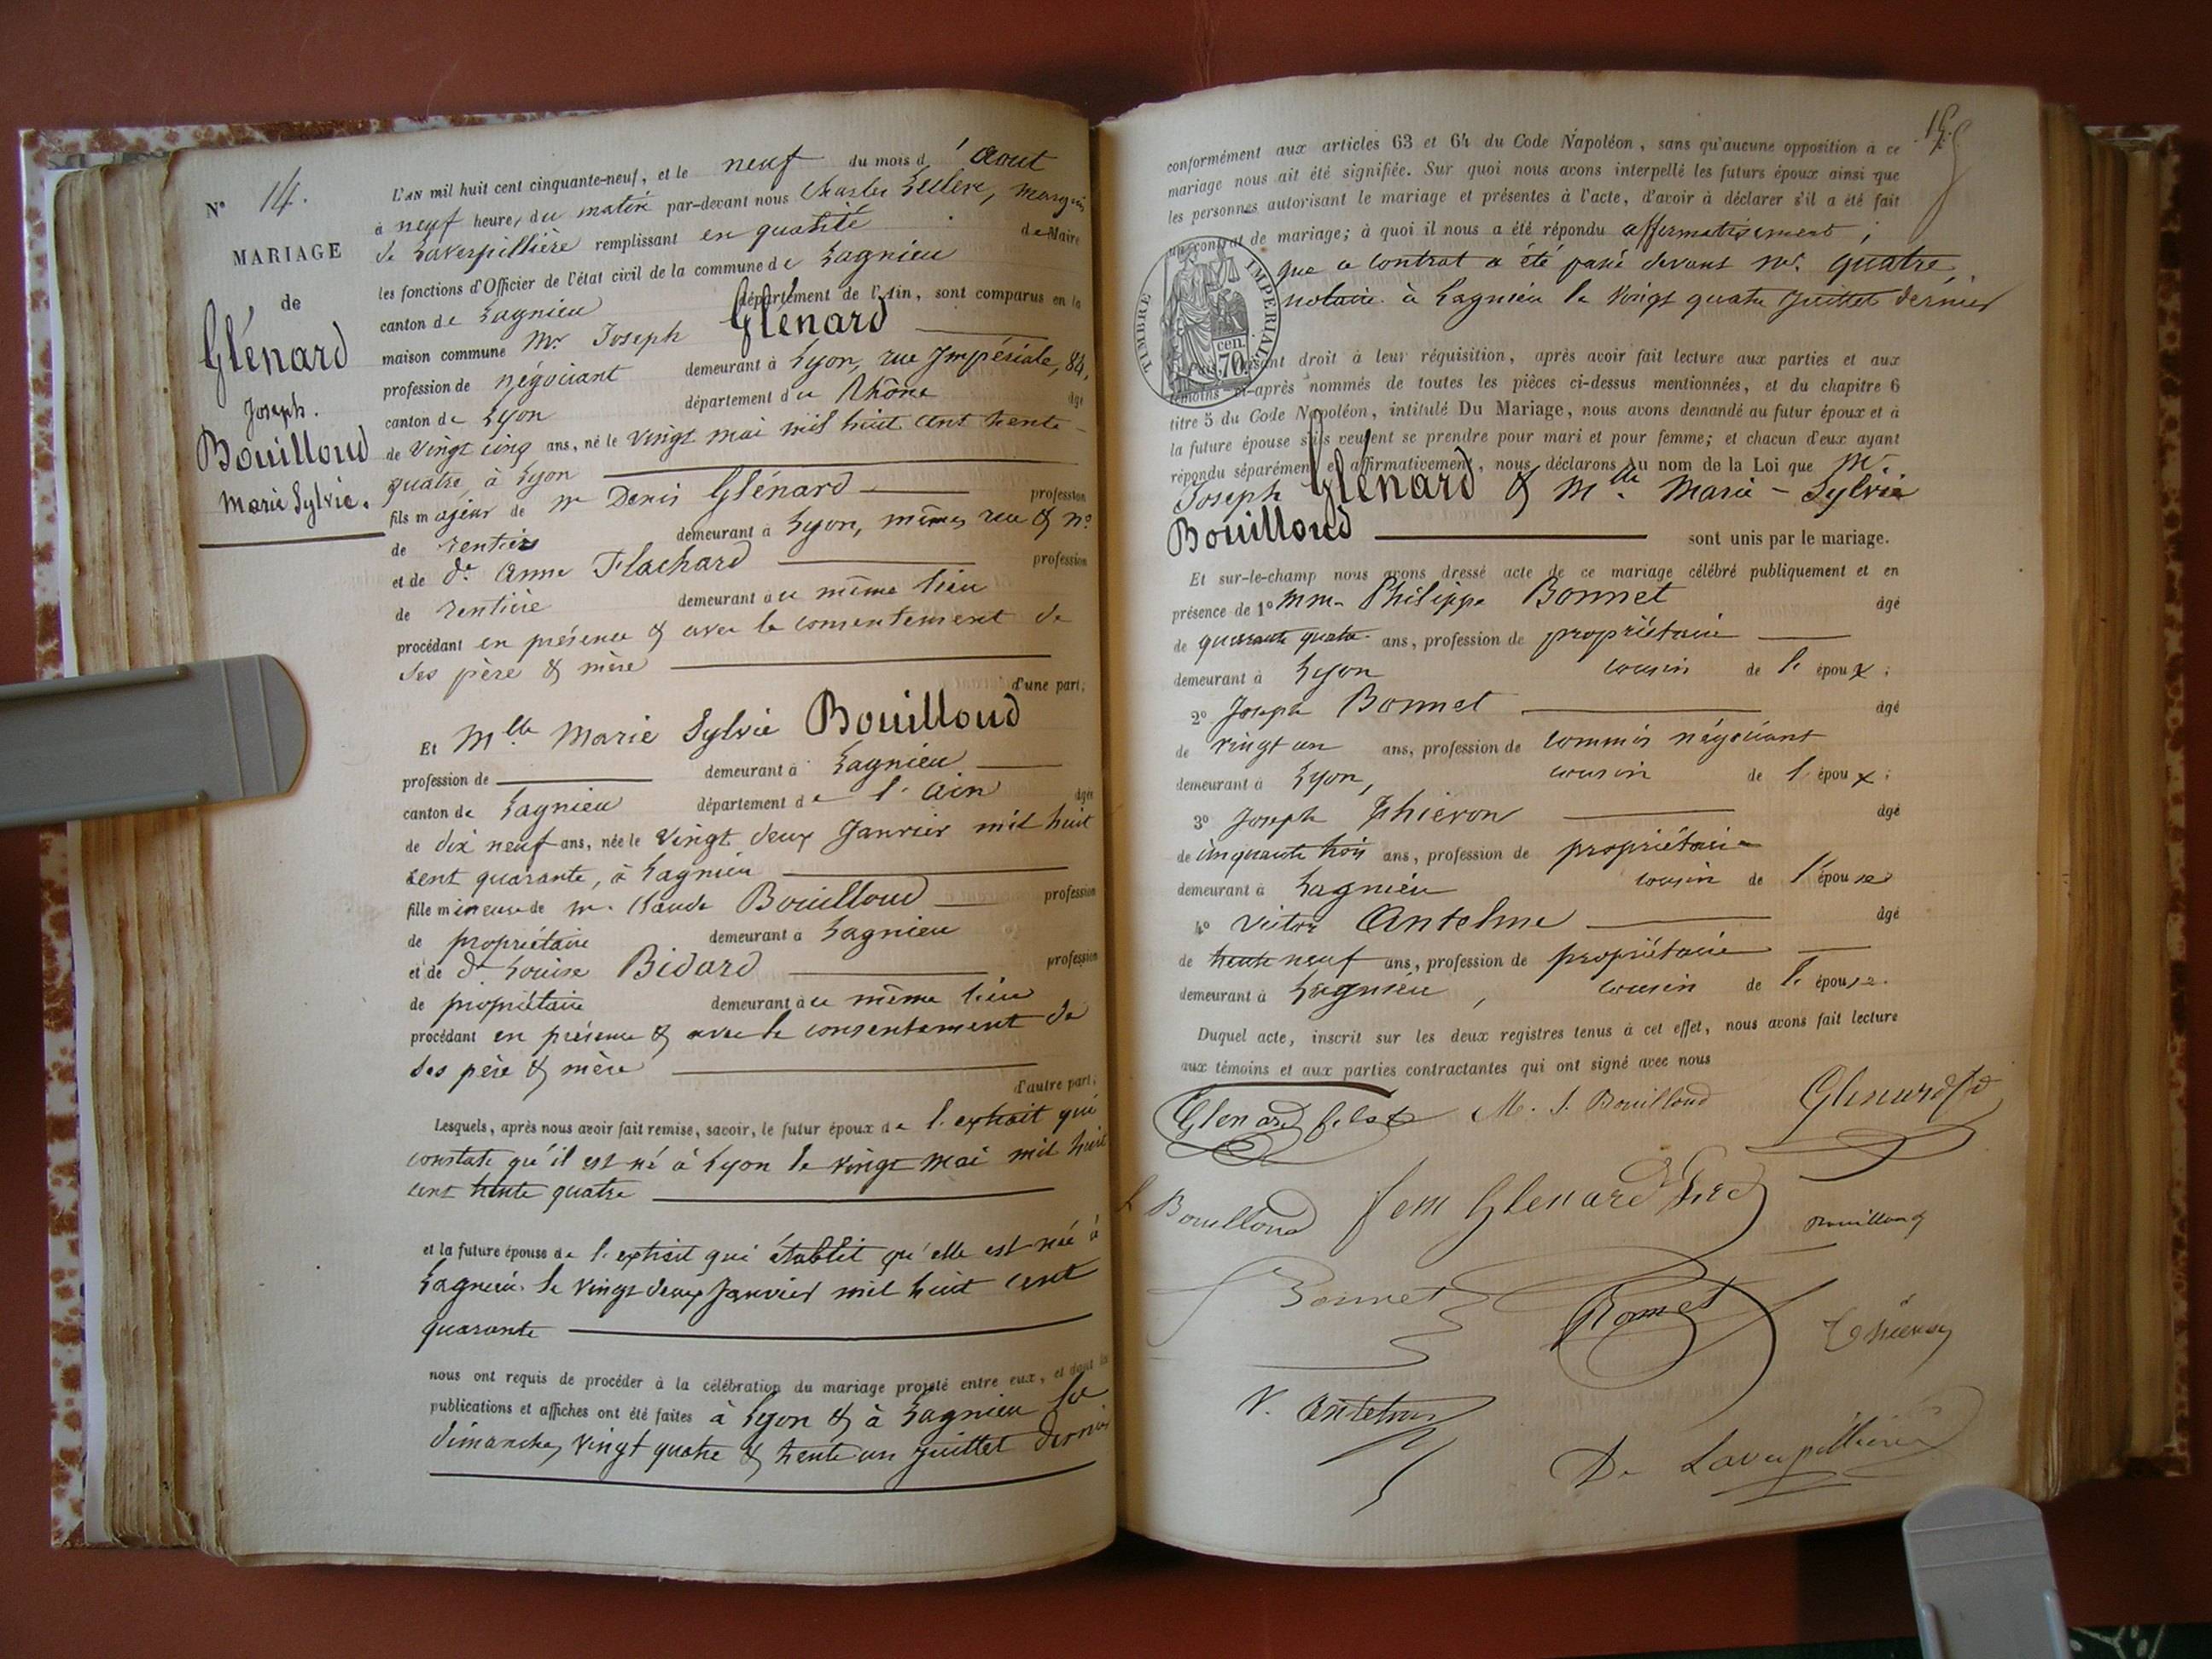 N° 14.
MARIAGE
de
Glénard
Joseph.
Bouilloud
Marie Sylvie.
L'AN mil huit cent cinquante-neuf, et le neuf du mois d'Aout
à neuf heures du matin par-devant nous Charles Leclerc, marquis
de Laverpillière remplissant en qualité de Maire
les fonctions d'Officier de l'état civil de la commune de Lagnieu
canton de Lagnieu département de l'Ain, sont comparus en la
maison commune Mr Joseph Glénard
profession de négociant demeurant à Lyon, rue Impériale, 84,
canton de Lyon département du Rhône âgé
de vingt cinq ans, né le vingt mai mil huit cent trente-
quatre, à Lyon
fils majeur de Mr Denis Glénard profession
de rentier demeurant à Lyon, mêmes rue & n°
et de de Anne Flachard profession
de rentière demeurant au même lieu
procédant en présence & avec le consentement de
ses père & mère
d'une part;
Et Mlle Marie Sylvie Bouilloud
profession de demeurant à Lagnieu
canton de Lagnieu département de l'Ain âgée
de dix neuf ans, née le vingt deux Janvier mil huit
cent quarante, à Lagnieu
fille mineure de Mr Claude Bouilloud profession
de propriétaire demeurant à Lagnieu
et de de Louise Bidard profession
de propriétaire demeurant au même lieu
procédant en présence & avec le consentement de
ses père & mère
d'autre part;
Lesquels, après nous avoir fait remise, savoir, le futur époux de l'extrait qui
constate qu'il est né à Lyon le vingt mai mil huit
cent trente quatre
et la future épouse de l'extrait qui établit qu'elle est née à
Lagnieu le vingt deux Janvier mil huit cent
quarante
nous ont requis de procéder à la célébration du mariage projeté entre eux, et dont les
publications et affiches ont été faites à Lyon & à Lagnieu les
dimanches vingt quatre & trente un juillet dernier
15.
conformément aux articles 63 et 64 du Code Napoléon, sans qu'aucune opposition à ce
mariage nous ait été signifiée. Sur quoi nous avons interpellé les futurs époux ainsi que
les personnes autorisant le mariage et présentes à l'acte, d'avoir à déclarer s'il a été fait
un contrat de mariage; à quoi il nous a été répondu affirmativement;
que ce contrat a été passé devant Me. Quatre,
notaire à Lagnieu le vingt quatre Juillet dernier
TIMBRE IMPERIAL
70 cen.
Puis, faisant droit à leur réquisition, après avoir fait lecture aux parties et aux
témoins ci-après nommés de toutes les pièces ci-dessus mentionnées, et du chapitre 6
titre 5 du Code Napoléon, intitulé Du Mariage, nous avons demandé au futur époux et à
la future épouse s'ils veulent se prendre pour mari et pour femme; et chacun d'eux ayant
répondu séparément et affirmativement, nous déclarons au nom de la Loi que Mr.
Joseph Glénard & Mlle. Marie-Sylvie
Bouilloud sont unis par le mariage.
Et sur-le-champ nous avons dressé acte de ce mariage célébré publiquement et en
présence de 1° Mm. Philippe Bonnet âgé
de quarante quatre ans, profession de propriétaire
demeurant à Lyon cousin de l'époux;
2° Joseph Bonnet âgé
de vingt un ans, profession de commis négociant
demeurant à Lyon, cousin de l'époux;
3° Joseph Thiévon âgé
de cinquante trois ans, profession de propriétaire
demeurant à Lagnieu cousin de l'épouse
4° Victor Antelme âgé
de trente neuf ans, profession de propriétaire
demeurant à Lagnieu, cousin de l'épouse.
Duquel acte, inscrit sur les deux registres tenus à cet effet, nous avons fait lecture
aux témoins et aux parties contractantes qui ont signé avec nous
Glenard fils M. S. Bouilloud Glenard
Bouilloud fem Glenard Bouilloud
Bonnet Bonnet Thiévon
V. Antelme
De Laverpillière